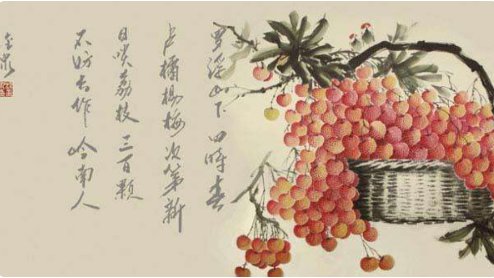 罗浮山下四时春
卢橘杨梅次第新
日啖荔枝三百颗
不妨长作岭南人